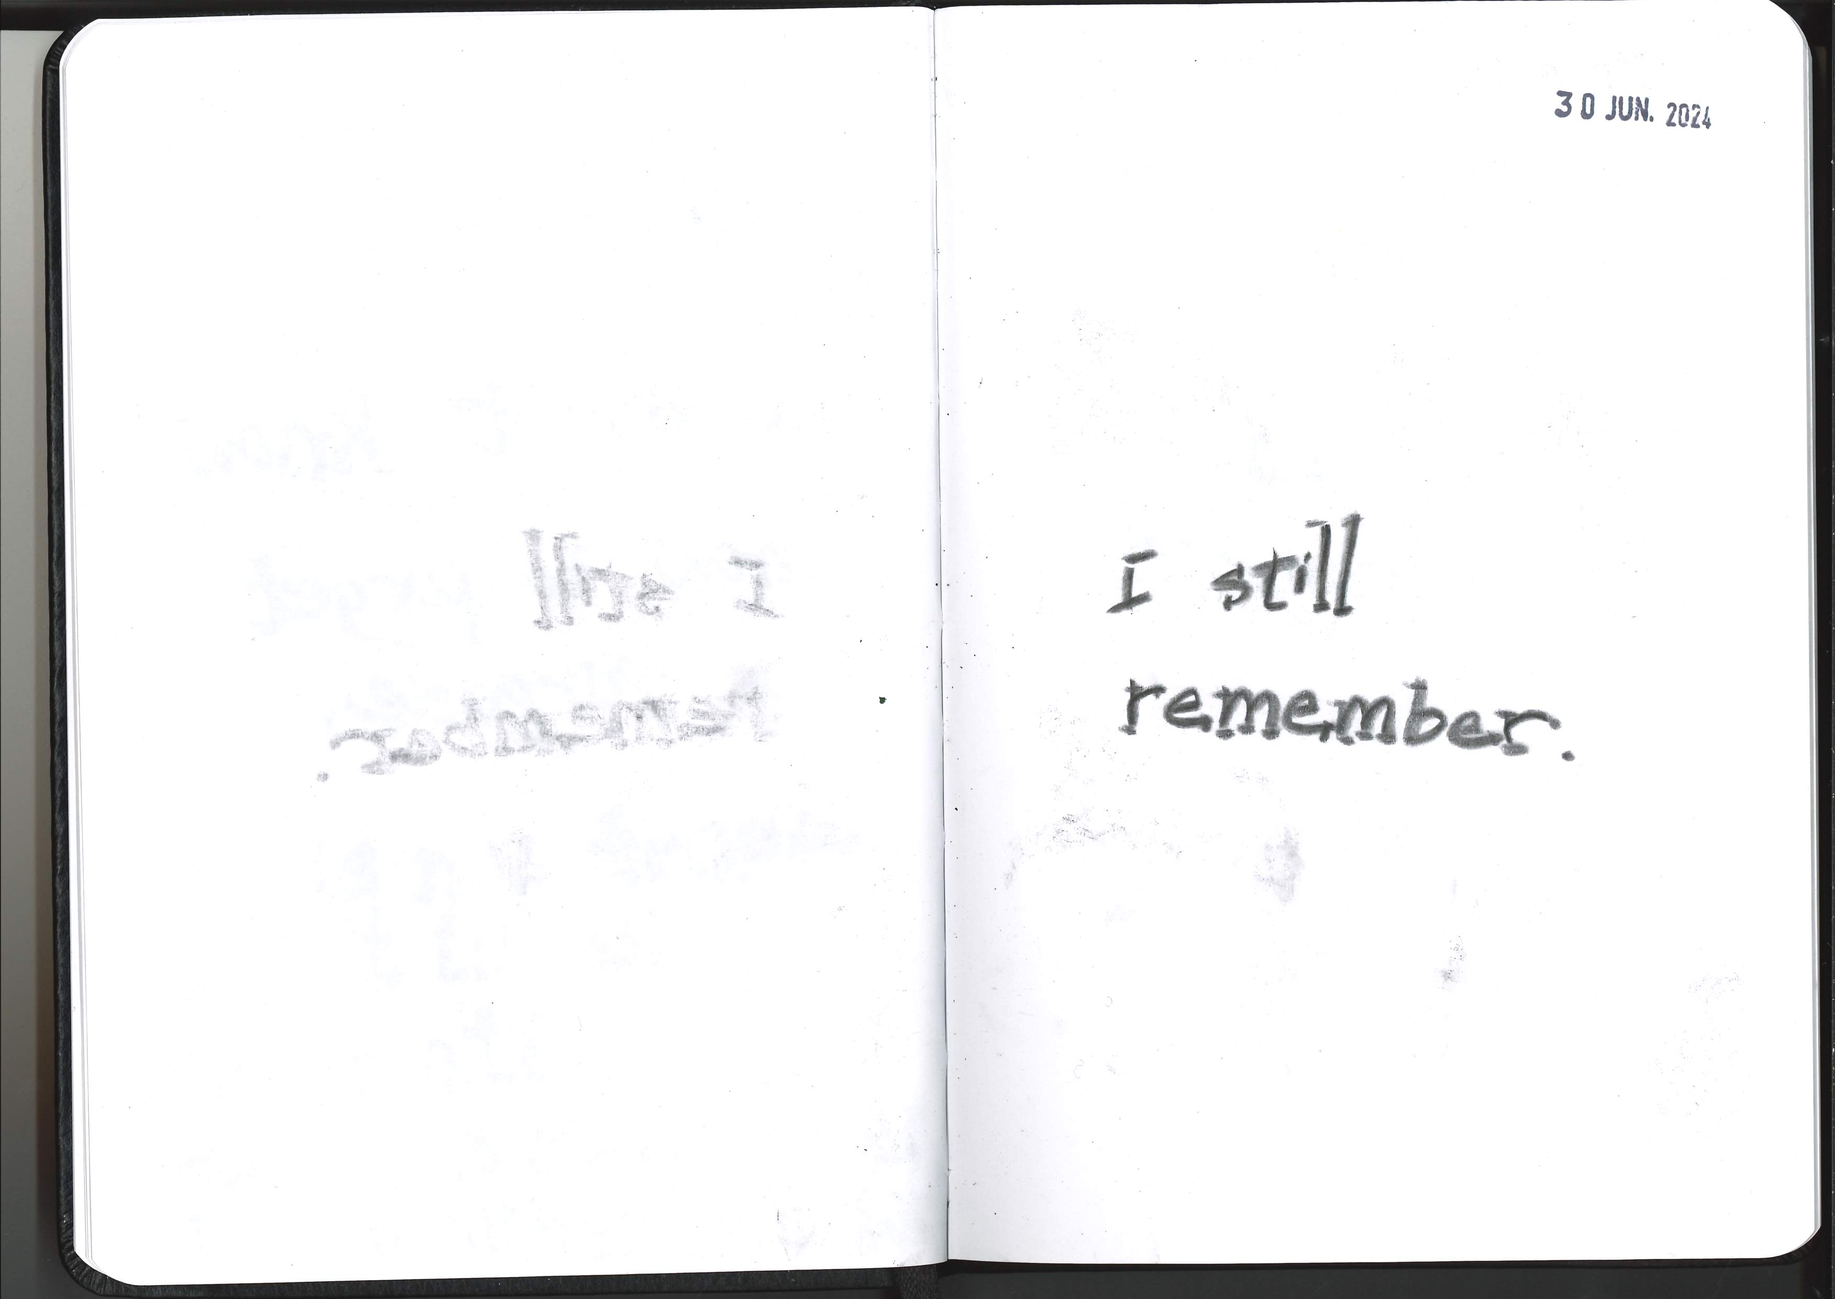 30 JUN. 2024
I still
remember.